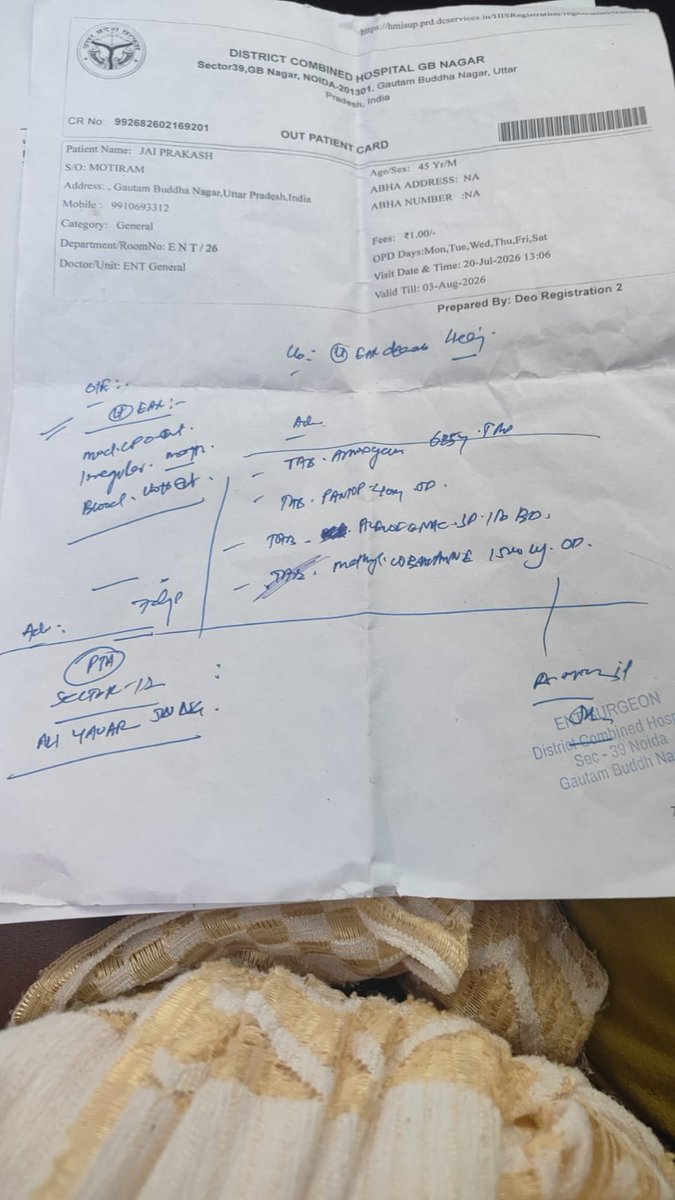 https://hmisup.prd.dcservices.in/HISRegistration/registration/
DISTRICT COMBINED HOSPITAL GB NAGAR
Sector39,GB Nagar, NOIDA-201301, Gautam Buddha Nagar, Uttar
Pradesh, India
CR No: 992682602169201
OUT PATIENT CARD
Patient Name: JAI PRAKASH
S/O: MOTIRAM
Address: , Gautam Buddha Nagar,Uttar Pradesh,India
Mobile : 9910693312
Category: General
Department/RoomNo: E N T / 26
Doctor/Unit: ENT General
Age/Sex: 45 Yr/M
ABHA ADDRESS: NA
ABHA NUMBER :NA
Fees: ₹1.00/-
OPD Days:Mon,Tue,Wed,Thu,Fri,Sat
Visit Date & Time: 20-Jul-2026 13:06
Valid Till: 03-Aug-2026
Prepared By: Deo Registration 2
EAR
O/E :-
EAR :-
Irregular
Blood
Adv
TAB.
TAB. PANTOP-40mg OD.
TAB. SP BD.
TAB. methyl COBALAMINE OD.
Adv :
PTA
SECTOR-12
ALI YAVAR JUNG.
ENT SURGEON
District Combined Hosp
Sec - 39 Noida
Gautam Buddh Na